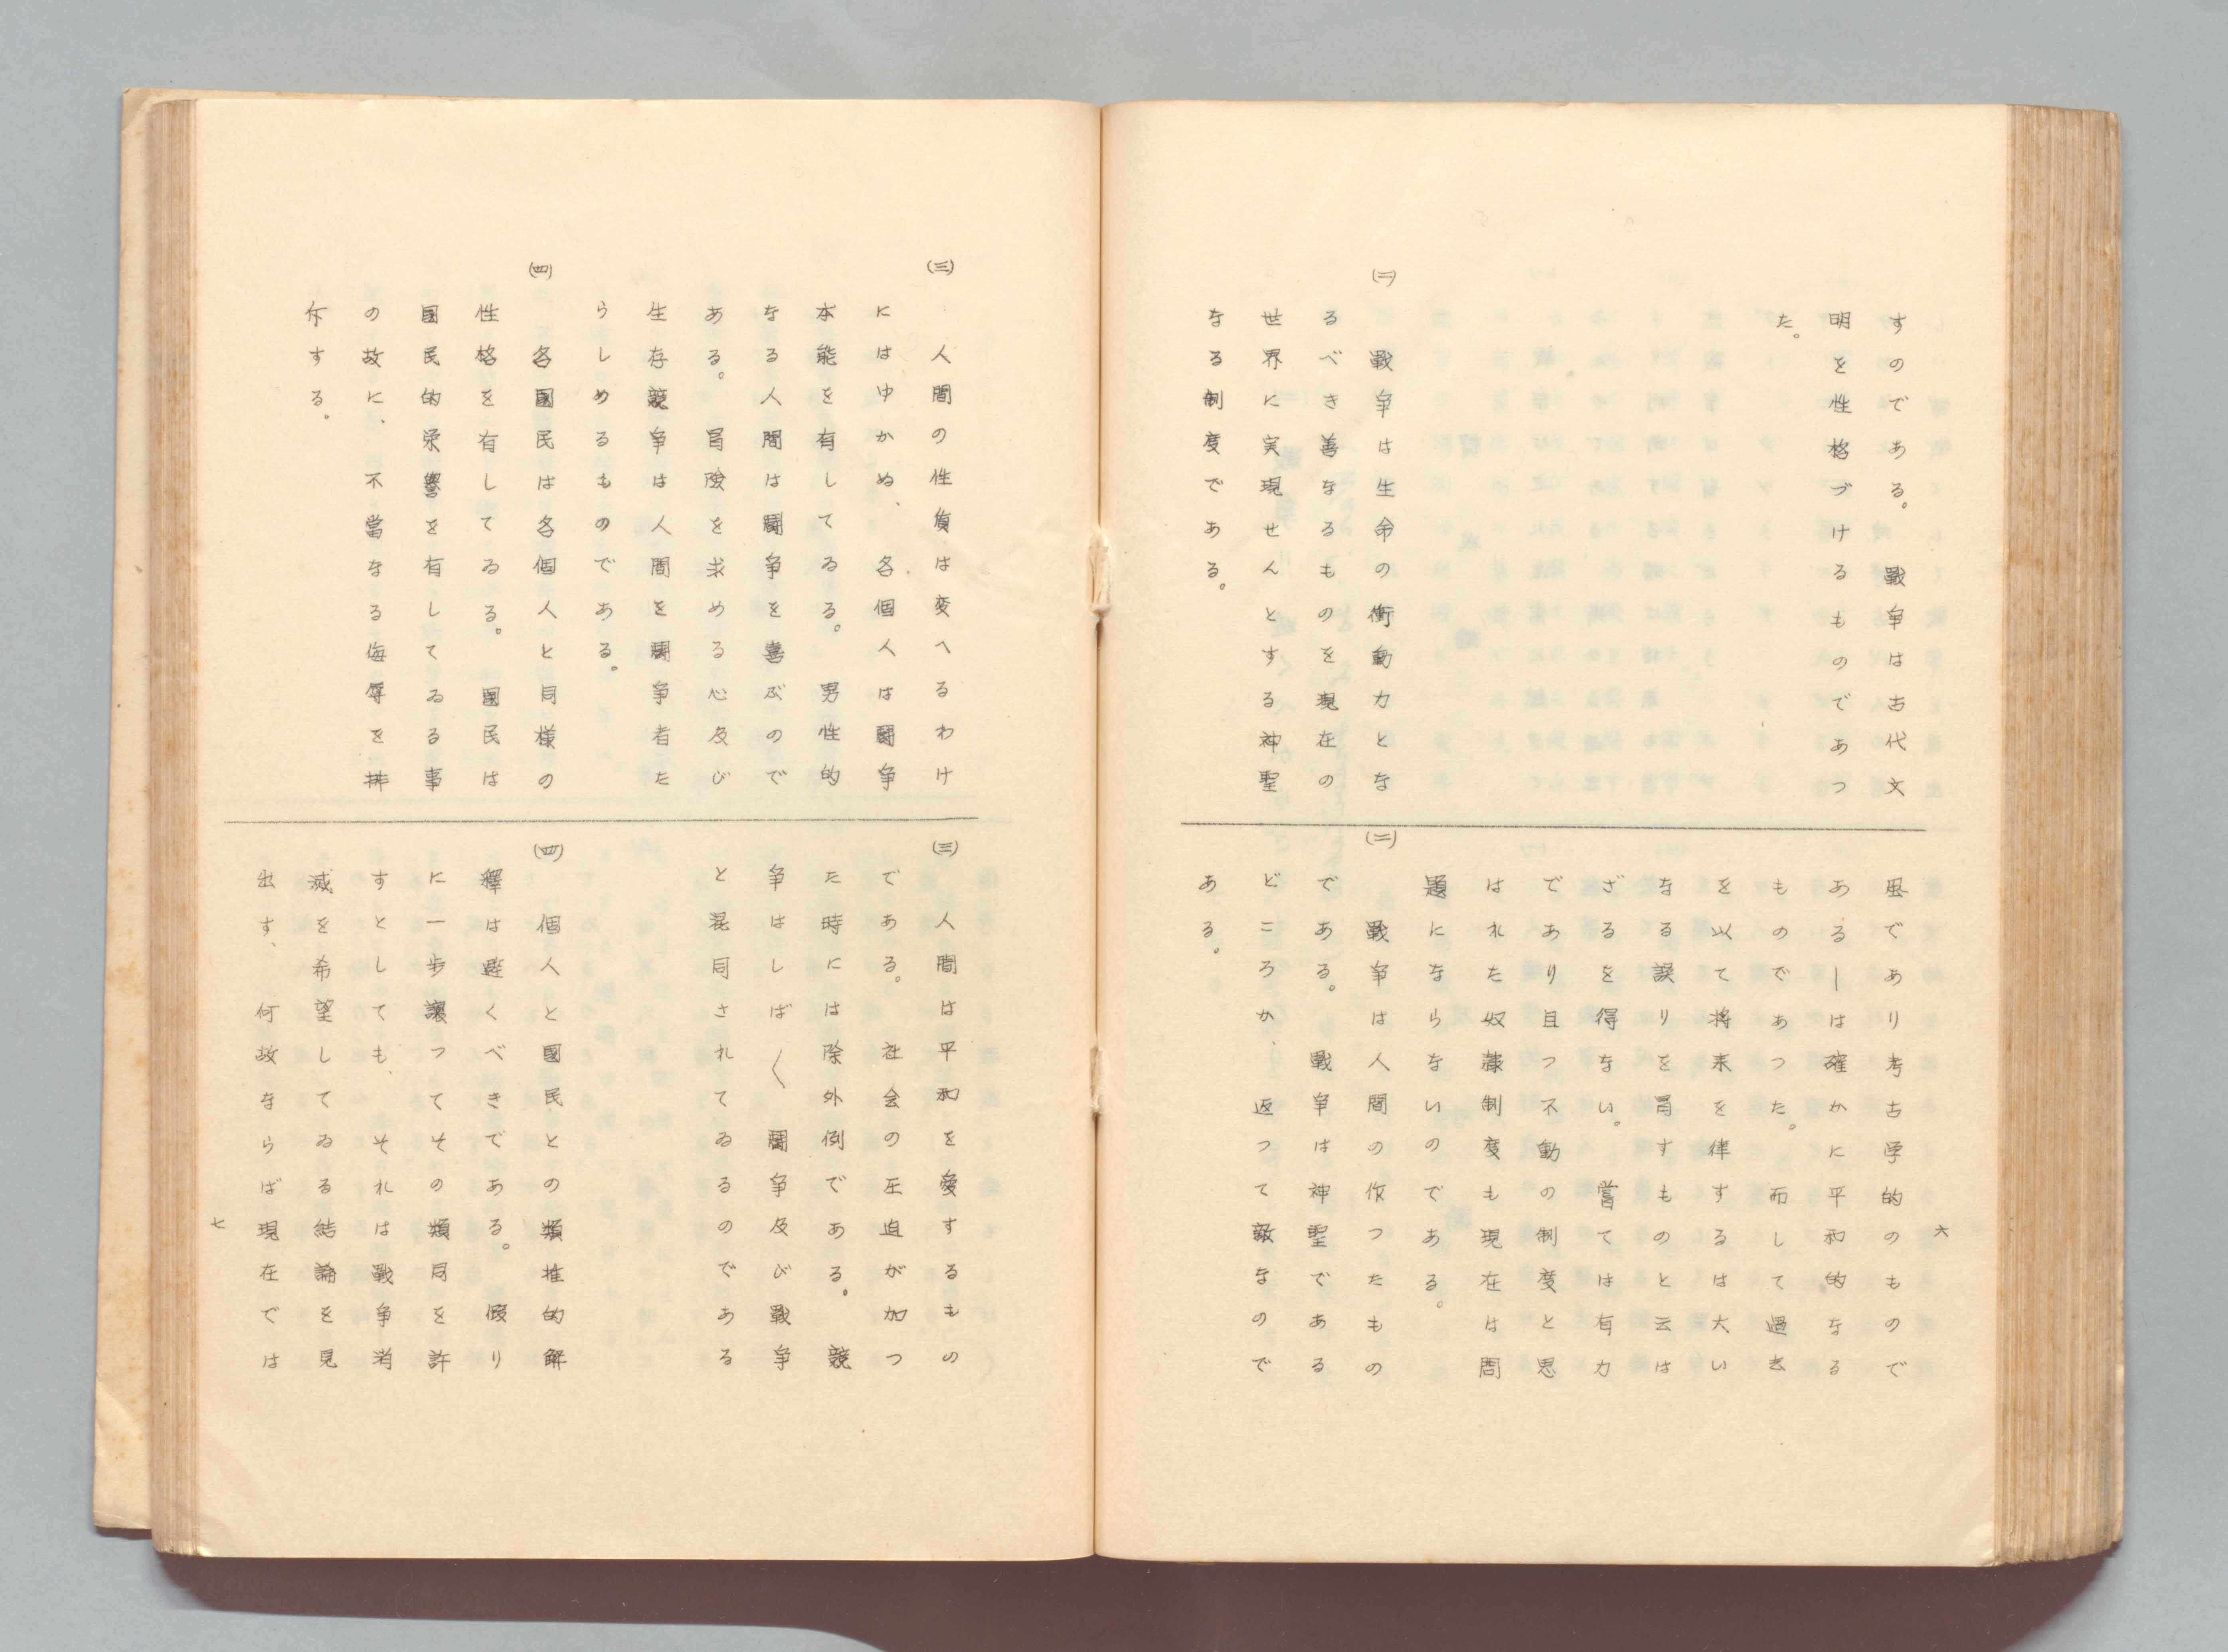 すのである。戰争は古代文
明を性格づけるものであつ
た。
(二)
戰争は生命の衝動力とな
るべき善なるものを現在の
世界に実現せんとする神聖
なる制度である。
六
風であり考古学的のもので
ある―は確かに平和的なる
ものであつた。而して過去
を以て将来を律するは大い
なる誤りを冒すものと云は
ざるを得ない。嘗ては有力
であり且つ不動の制度と思
はれた奴隷制度も現在は問
題にならないのである。
(二)
戰争は人間の作つたもの
である。戰争は神聖である
どころか、返つて敵なので
ある。
(三)
人間の性質は変へるわけ
にはゆかぬ、各個人は鬪争
本能を有してゐる。男性的
なる人間は鬪争を喜ぶので
ある。冒険を求める心及び
生存競争は人間を鬪争者た
らしめるものである。
(四)
各國民は各個人と同様の
性格を有してゐる。國民は
國民的栄誉を有してゐる事
の故に、不當なる侮辱を排
斥する。
(三)
人間は平和を愛するもの
である。社会の圧迫が加つ
た時には除外例である。競
争はしば〱鬪争及び戰争
と混同されてゐるのである
(四)
個人と國民との類推的解
釋は避くべきである。假り
に一歩讓つてその類同を許
すとしても、それは戰争消
滅を希望してゐる結論を見
出す、何故ならば現在では
七